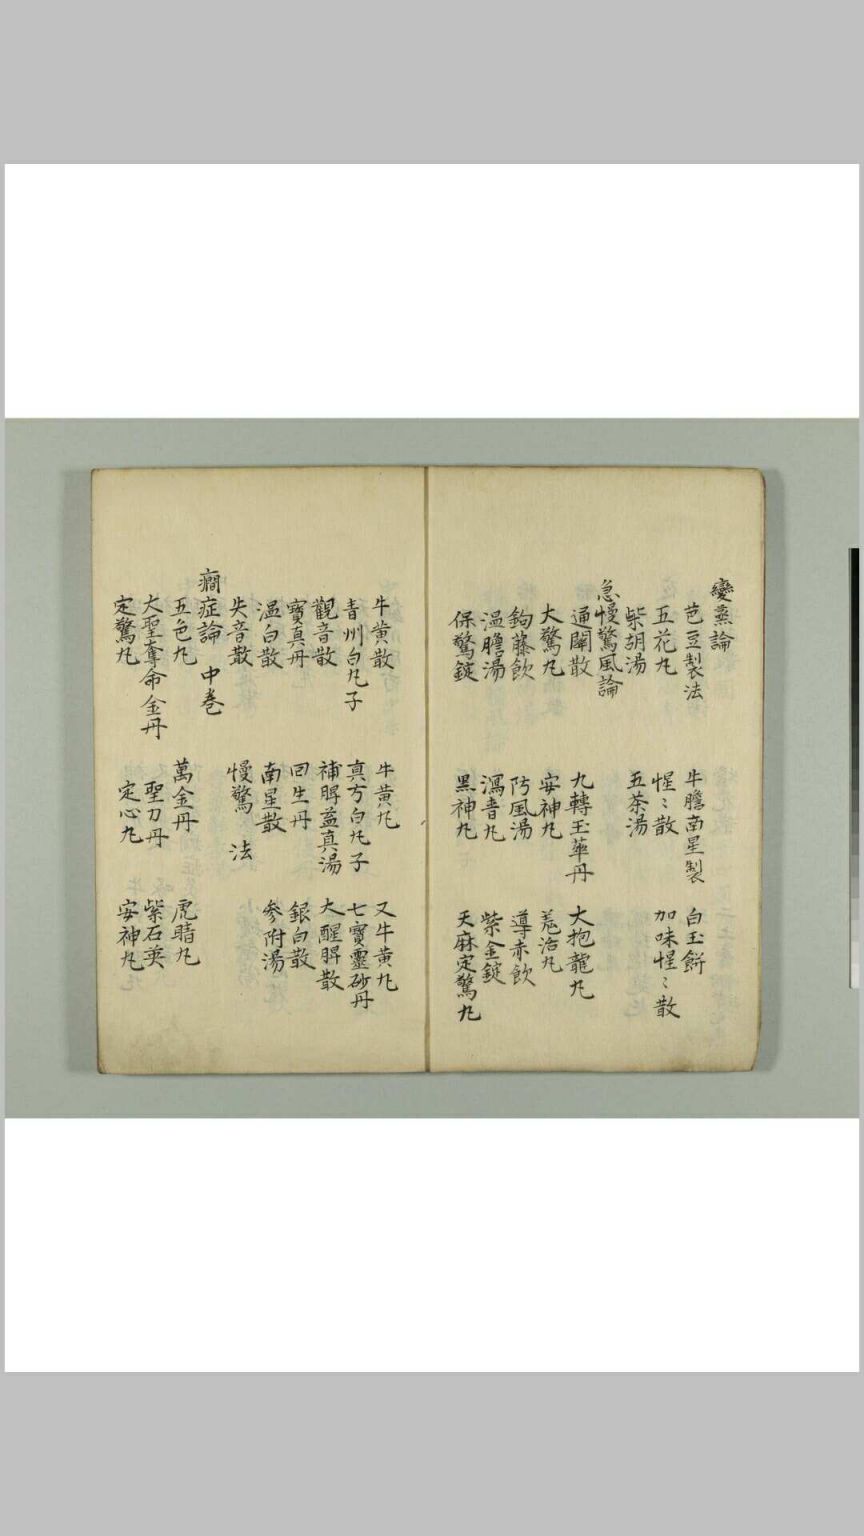 變蒸論
芭豆製法 牛膽南星製 白玉餅
五花丸 惺〻散 加味惺〻散
柴胡湯 五茶湯
急慢驚風論
通關散 九轉玉華丹 大抱龍丸
大驚丸 安神丸 羗活丸
鉤藤飲 防風湯 導赤飲
温膽湯 瀉青丸 紫金錠
保驚錠 黒神丸 天麻定驚丸
牛黄散 牛黄丸 又牛黄丸
青州白丸子 真方白丸子 七寶靈砂丹
觀音散 補脾益真湯 大醒脾散
寶真丹 回生丹 銀白散
温白散 南星散 參附湯
失音散 慢驚 法
癇症論 中巻
五色丸 萬金丹 虎睛丸
大聖奪命金丹 聖刀丹 紫石英
定驚丸 定心丸 安神丸